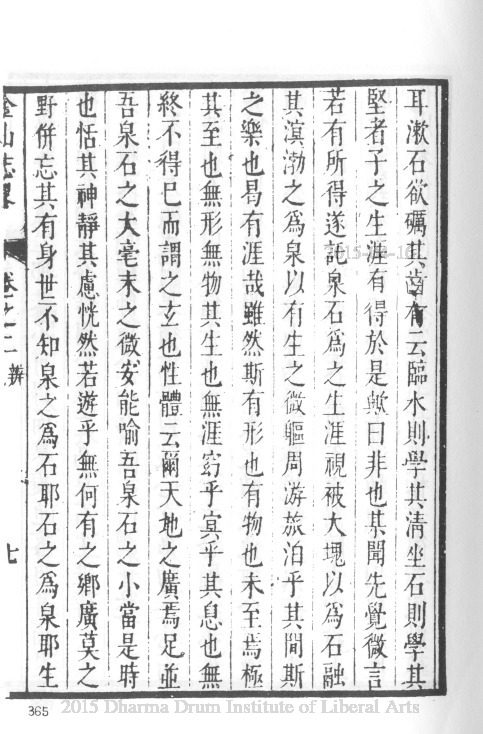 耳漱石欲礪其齒有云臨水則學其清坐石則學其
堅者子之生涯有得於是歟曰非也某聞先覺微言
若有所得遂託泉石爲之生涯視彼大塊以爲石融
其溟渤之爲泉以有生之微軀周游旅泊乎其間斯
之樂也曷有涯哉雖然斯有形也有物也未至焉極
其至也無形無物其生也無涯窈乎冥乎其息也無
終不得已而謂之玄也性體云爾天地之廣焉足並
吾泉石之大毫末之微安能喻吾泉石之小當是時
也恬其神靜其慮恍然若遊乎無何有之鄉廣莫之
野併忘其有身世不知泉之爲石耶石之爲泉耶生
金山志畧
卷之二
辨
七
365
2015 Dharma Drum Institute of Liberal Arts